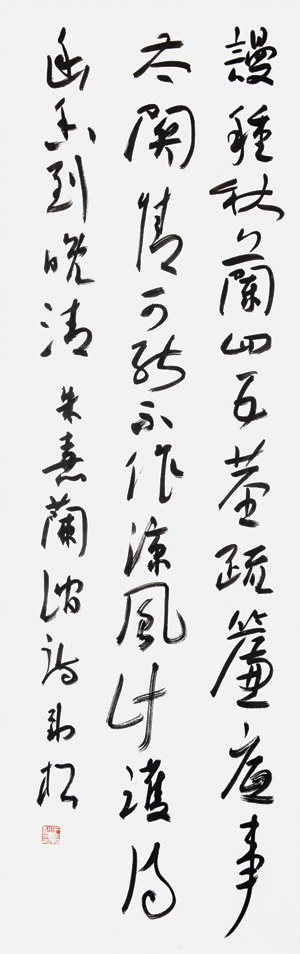 謾種秋蘭四五莖疏簾底事
太關情可能不作涼風計護得
幽香到晚清 朱熹蘭澗詩 松